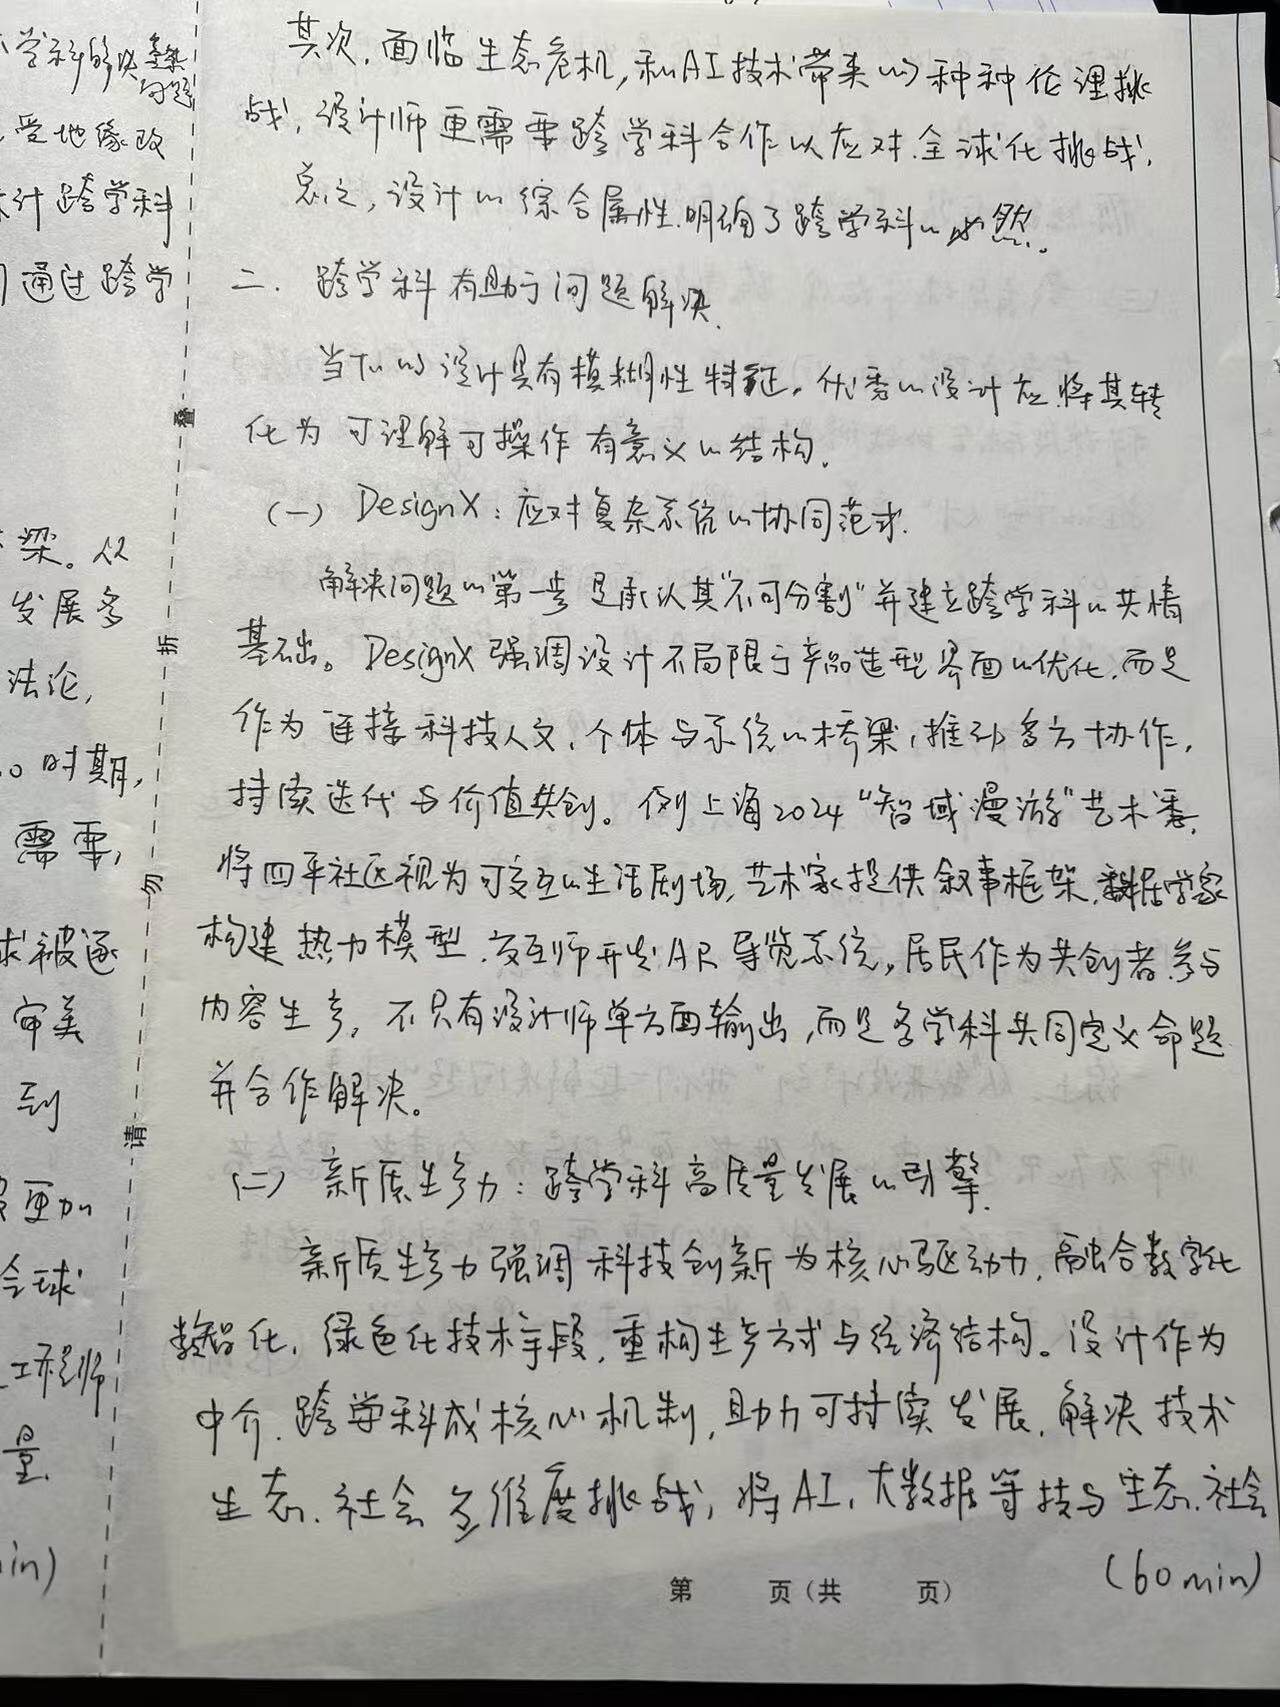 学科解决复杂
问题
受地缘政
计跨学科
通过跨学
梁。从
发展多
法论,
时期,
需要,
求被逐
审美
到
更加
全球
工程师
量.
in)
叠
折
勿
请
其次,面临生态危机,和AI技术带来的种种伦理挑
战,设计师更需要跨学科合作以应对全球化挑战,
总之,设计的综合属性,明确了跨学科的必然。
二. 跨学科有助于问题解决.
当下的设计具有模糊性特征,优秀的设计应将其转
化为可理解可操作有意义的结构,
(一) DesignX:应对复杂系统的协同范式.
解决问题的第一步是承认其“不可分割”并建立跨学科的共情
基础。DesignX强调设计不局限于产品造型界面的优化,而是
作为连接科技人文、个体与系统的桥梁,推动多方协作,
持续迭代与价值共创。例上海2024“智域漫游”艺术季,
将四平社区视为可交互的生活剧场,艺术家提供叙事框架,数据学家
构建热力模型,交互师开发AR导览系统,居民作为共创者参与
内容生产,不只有设计师单方面输出,而是多学科共同定义命题
并合作解决。
(二) 新质生产力:跨学科高质量发展的引擎.
新质生产力强调科技创新为核心驱动力,融合数字化
数智化,绿色化技术手段,重构生产方式与经济结构。设计作为
中介,跨学科成核心机制,助力可持续发展,解决技术
生态、社会多维度挑战,将AI,大数据等技与生态、社会
(60min)
第 页(共 页)